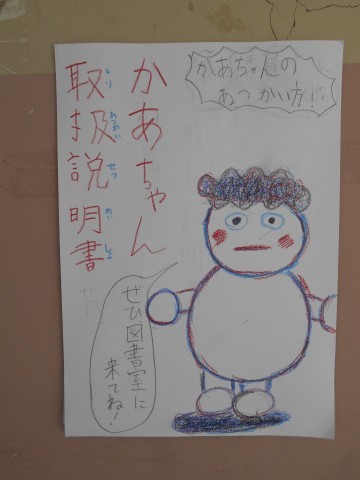 かあちゃん
取扱説明書
とり あつかい せつ めい しょ
かあちゃんの
あつかい方!?
ぜひ図書室に
来てね!